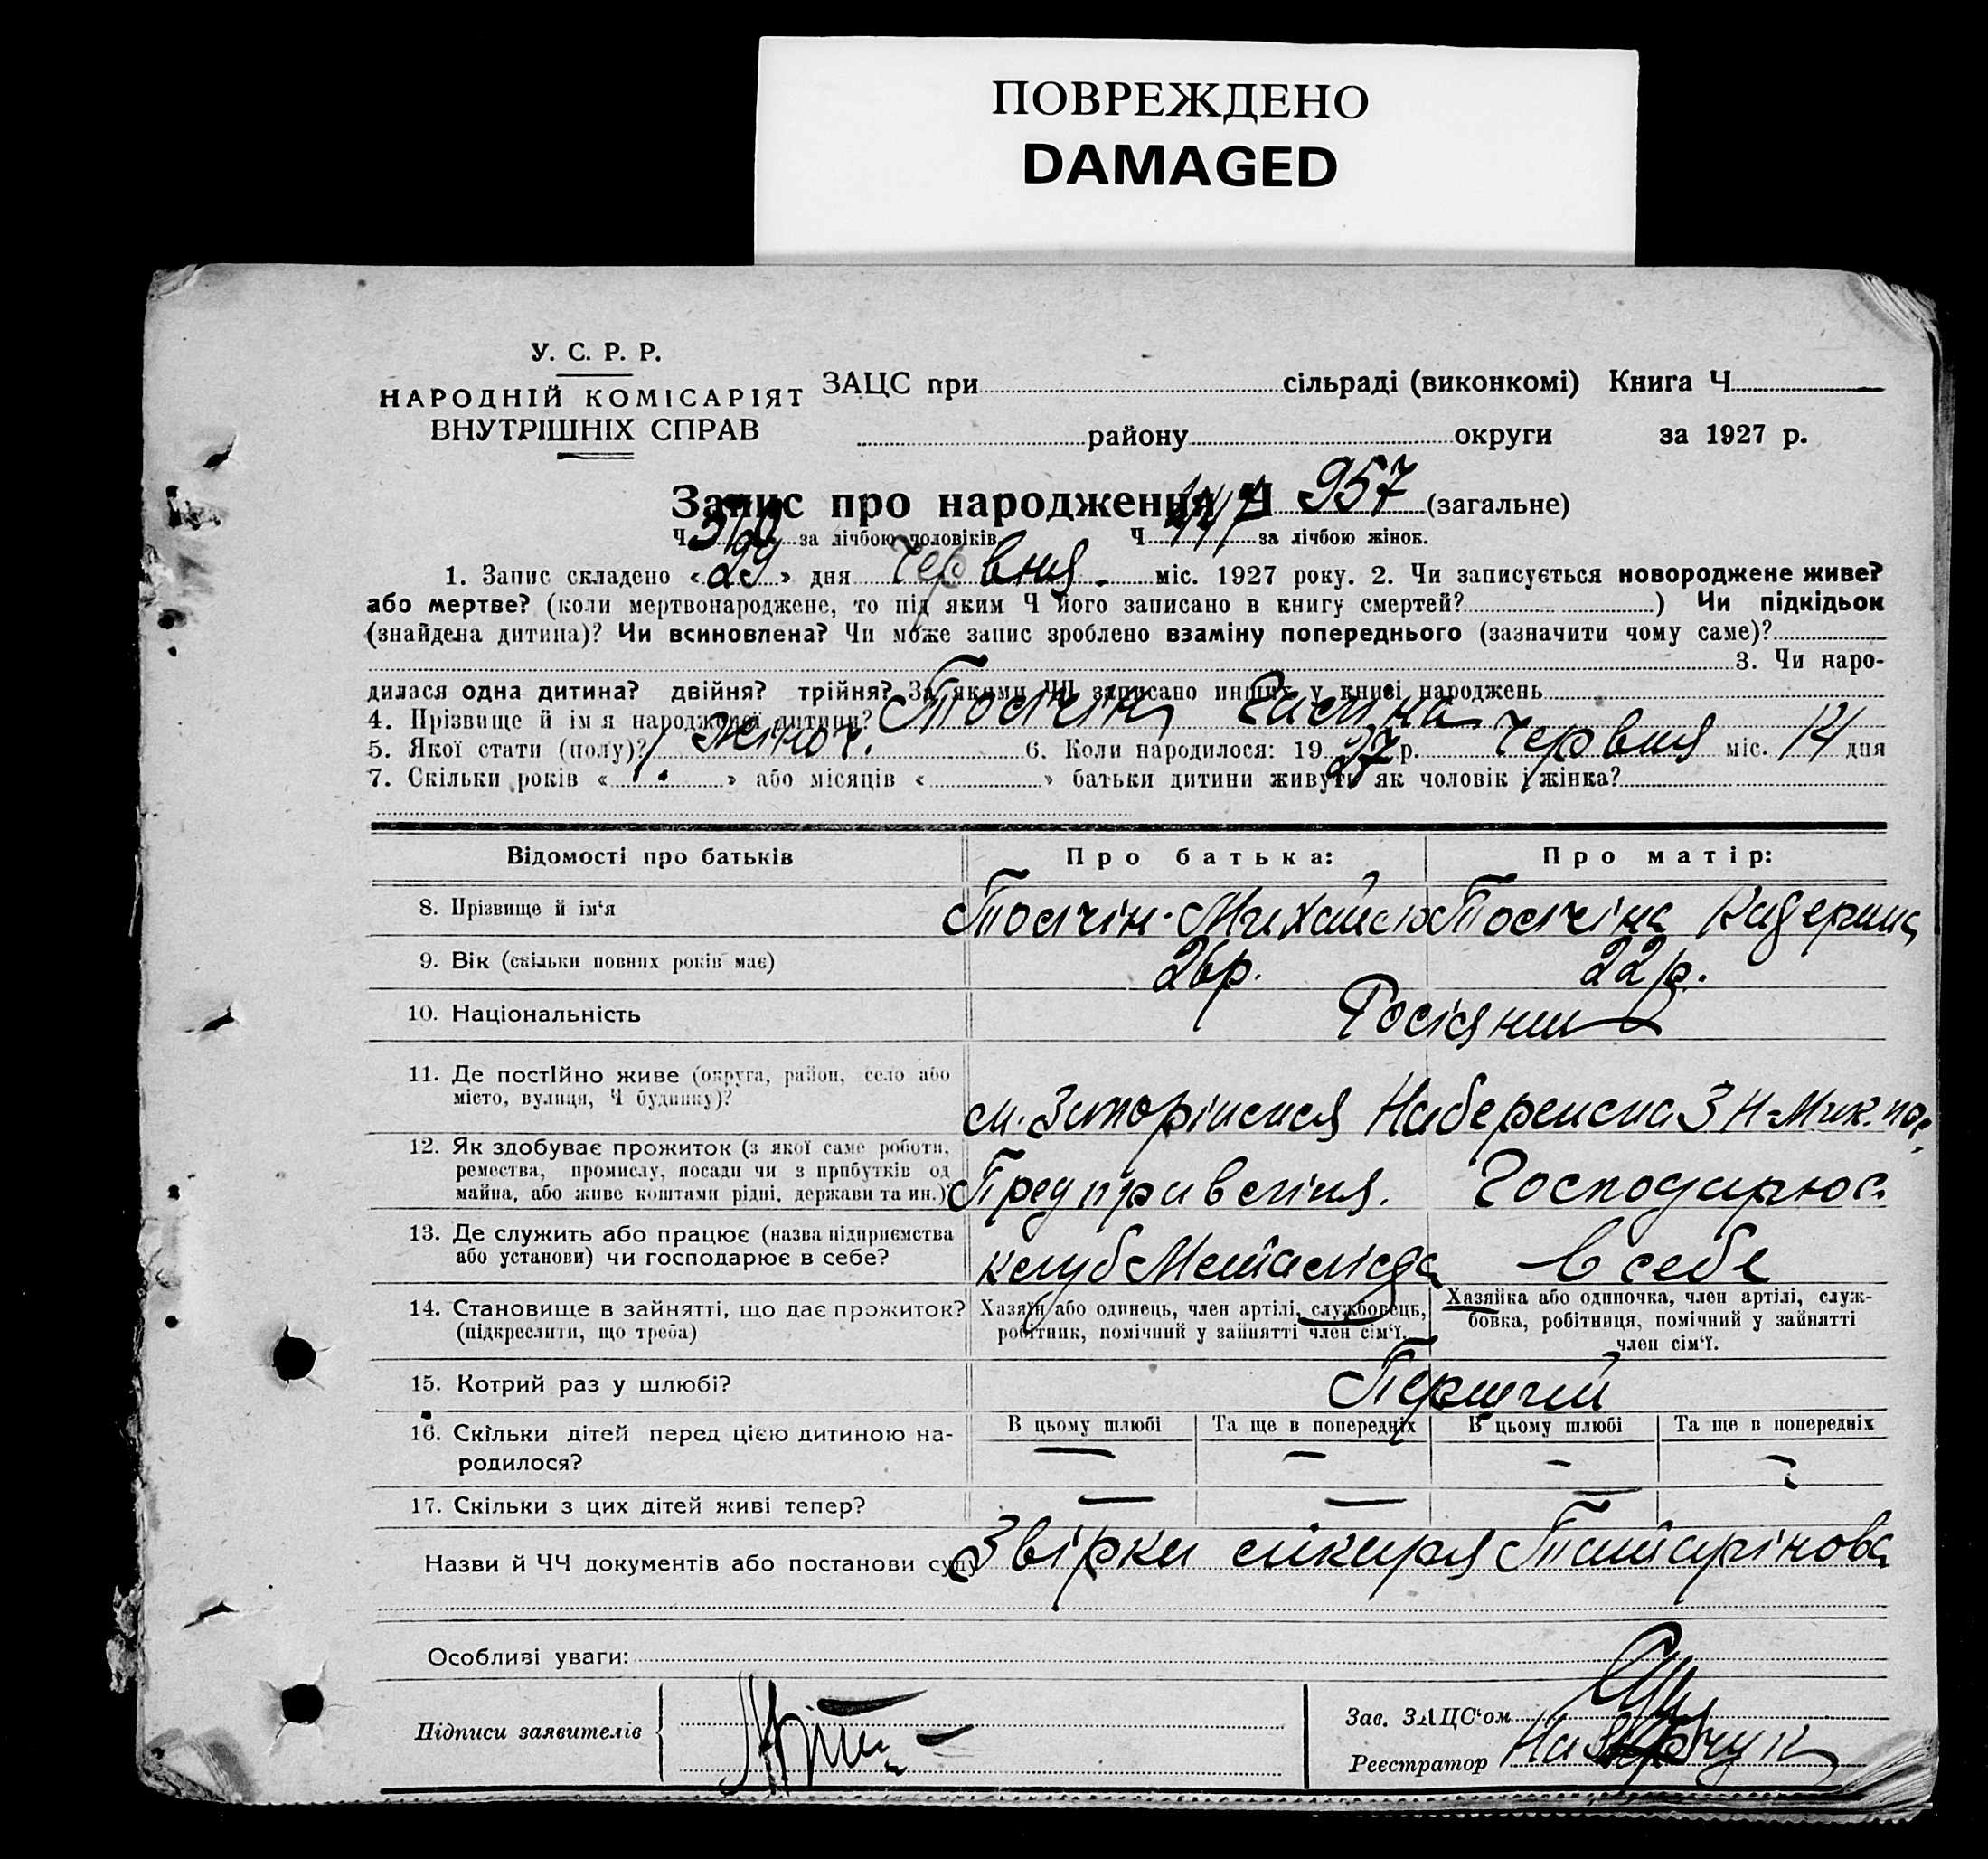 ПОВРЕЖДЕНО
DAMAGED
У. С. Р. Р.
НАРОДНІЙ КОМІСАРІЯТ
ВНУТРІШНІХ СПРАВ
ЗАЦС при сільраді (виконкомі) Книга Ч
району округи за 1927 р.
Запис про народження Ч 957 (загальне)
Ч 510 за лічбою чоловіків Ч 447 за лічбою жінок.
1. Запис складено «29» дня Червня міс. 1927 року. 2. Чи записується новороджене живе?
або мертве? (коли мертвонароджене, то під яким Ч його записано в книгу смертей? ) Чи підкідьок
(знайдена дитина)? Чи всиновлена? Чи може запис зроблено взаміну попереднього (зазначити чому саме)?
3. Чи наро-
дилася одна дитина? двійня? трійня? За якими ЧЧ записано инших у книзі народжень
4. Прізвище й імя народженої дитини? Толчін Галина
5. Якої стати (полу)? жіноч. 6. Коли народилося: 1927 р. Червня міс. 14 дня
7. Скільки років « » або місяців « » батьки дитини живуть як чоловік і жінка?
Відомості про батьків Про батька: Про матір:
8. Прізвище й ім'я Толчін Михайло Толчіна
9. Вік (скільки повних років має) 26 р. 22 р.
10. Національність Росіяни
11. Де постійно живе (округа, район, село або
місто, вулиця, Ч будинку)?
м. Запоріжжя Набережна
12. Як здобуває прожиток (з якої саме роботи,
ремества, промислу, посади чи з прибутків од
майна, або живе коштами рідні, держави та ин.)?
Пред правління. Господарює
13. Де служить або працює (назва підприємства
або установи) чи господарює в себе?
клуб Металіста в себе
14. Становище в зайнятті, що дає прожиток?
(підкреслити, що треба)
Хазяїн або одинець, член артілі, службовець,
робітник, помічний у зайнятті член сім'ї.
Хазяйка або одиночка, член артілі, служ-
бовка, робітниця, помічний у зайнятті
член сім'ї.
15. Котрий раз у шлюбі? Перший
16. Скільки дітей перед цією дитиною на-
родилося?
В цьому шлюбі Та ще в попередніх В цьому шлюбі Та ще в попередніх
— — — —
17. Скільки з цих дітей живі тепер? — — —
Назви й ЧЧ документів або постанови суду Звірки лікаря Татарінова
Особливі уваги:
Підписи заявителів
Зав. ЗАЦС'ом
Реєстратор Назарчук